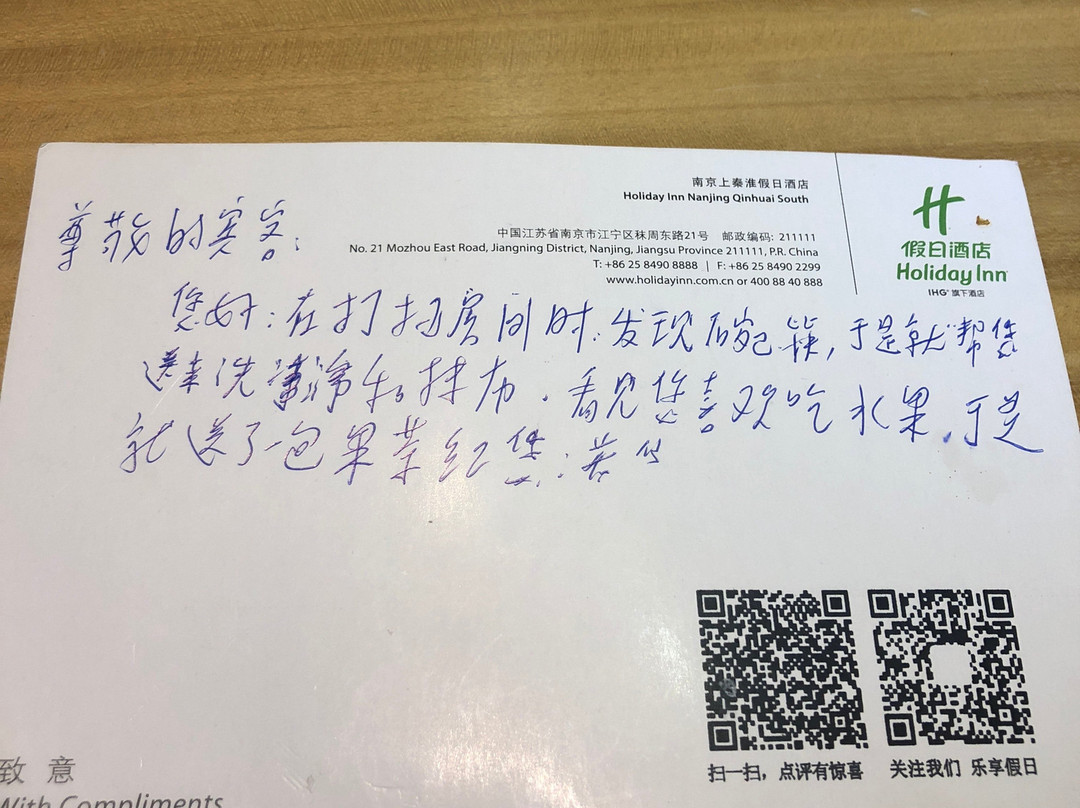 南京上秦淮假日酒店
Holiday Inn Nanjing Qinhuai South
中国江苏省南京市江宁区秣周东路21号 邮政编码: 211111
No. 21 Mozhou East Road, Jiangning District, Nanjing, Jiangsu Province 211111, P.R. China
T: +86 25 8490 8888 | F: +86 25 8490 2299
www.holidayinn.com.cn or 400 88 40 888
H
假日酒店
Holiday Inn
IHG® 旗下酒店
尊敬的宾客:
您好:在打扫房间时.发现有碗筷,于是就帮您
送来洗洁净和抹布.看见您喜欢吃水果.于是
就送了一包果茶给您.
扫一扫，点评有惊喜
关注我们 乐享假日
致 意
With Compliments